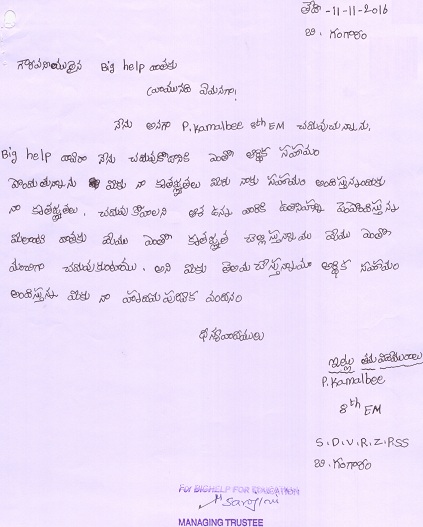 తేది -11-11-2016
బి. గంగారం
గౌరవనీయులైన Big help వారికు
నేను అనగా P.Kamalbee 8th EM చదువుచున్నాను.
Big help వారిచే నేను చదువుకోడానికి ఎంతో ఆర్థిక సహాయం
పొందుతున్నాను మీకు నా కృతజ్ఞతలు మీరు నాకు సహాయం అందిస్తున్నందుకు
నా కృతజ్ఞతలు. చదువుకోవాలని ఆశ ఉన్న వారికి
మీలాంటి వారికు మేము ఎంతో కృతజ్ఞత చెల్లిస్తున్నాము మేము ఎంతో
మంచిగా చదువుకుంటాము. అని మీకు ఆర్థిక సహాయం
అందిస్తున్న మీకు నా హృదయపూర్వక వందనం
ధన్యవాదములు
ఇట్లు తమ విధేయురాలు
P.Kamalbee
8th EM
S.D.V.R.Z.P.SS
బి. గంగారం
For BIGHELP FOR EDUCATION
MANAGING TRUSTEE